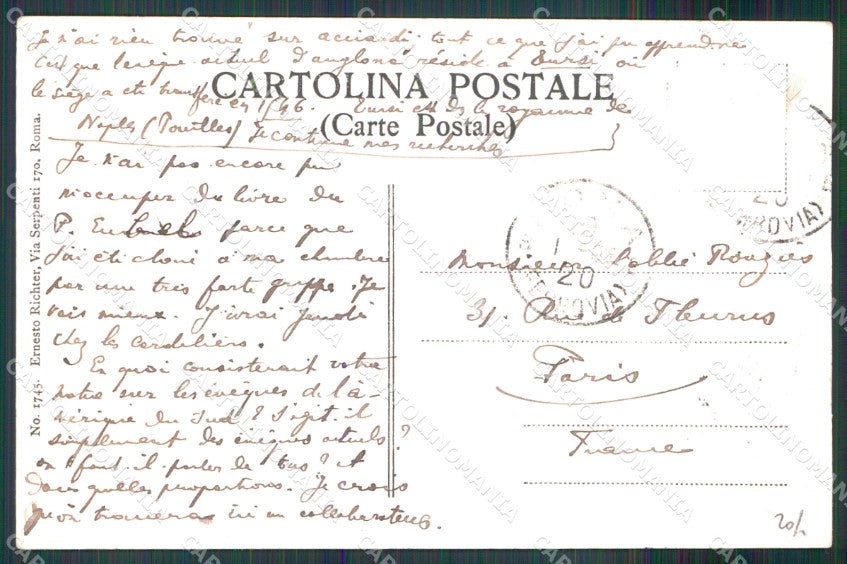 Je n'ai rien trouvé sur acciardi tout ce que j'ai pu apprendre
c'est que l'évêque actuel d'anglona réside à Tursi où
le siège a été transféré en 1546. Tursi est ds le royaume de
CARTOLINA POSTALE
Naples (Pouilles) Je continue mes recherches
(Carte Postale)
Je n'ai pas encore pu
m'occuper du livre du
P. Eubel parce que
j'ai été cloué à ma chambre
par une très forte grippe. Je
vais mieux. J'irai jeudi
chez les Cordeliers.
En quoi consisterait votre
notre sur les évêques de l'A-
mérique du Sud? S'agit-il
simplement des évêques actuels?
ou faut-il parler de tous? et
dans quelles proportions. Je crois
qu'on trouvera ici un collaborateur.
Monsieur l'abbé Rouziès
31. Rue de Fleurus
Paris
France
20
(FERROVIA)
20
ROVIA)
20/
No. 1745. Ernesto Richter, Via Serpenti 170, Roma.
CARTOLINOMANIA